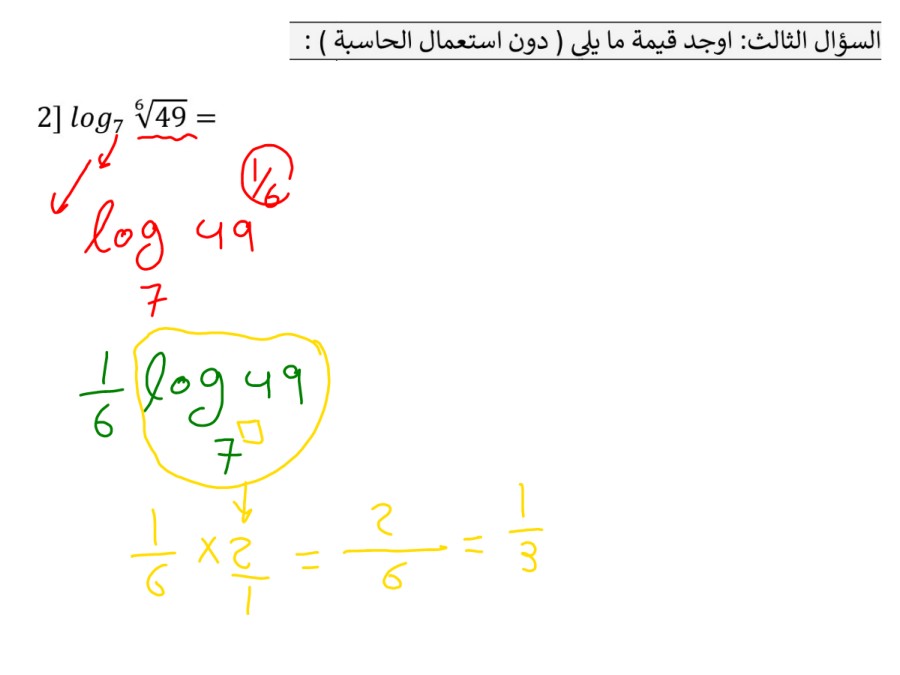 السؤال الثالث: اوجد قيمة ما يلي ( دون استعمال الحاسبة ) :
2] log₇ ⁶√49 =
log₇ 49^(1/6)
1/6 log₇ 49
1/6 × 2/1 = 2/6 = 1/3